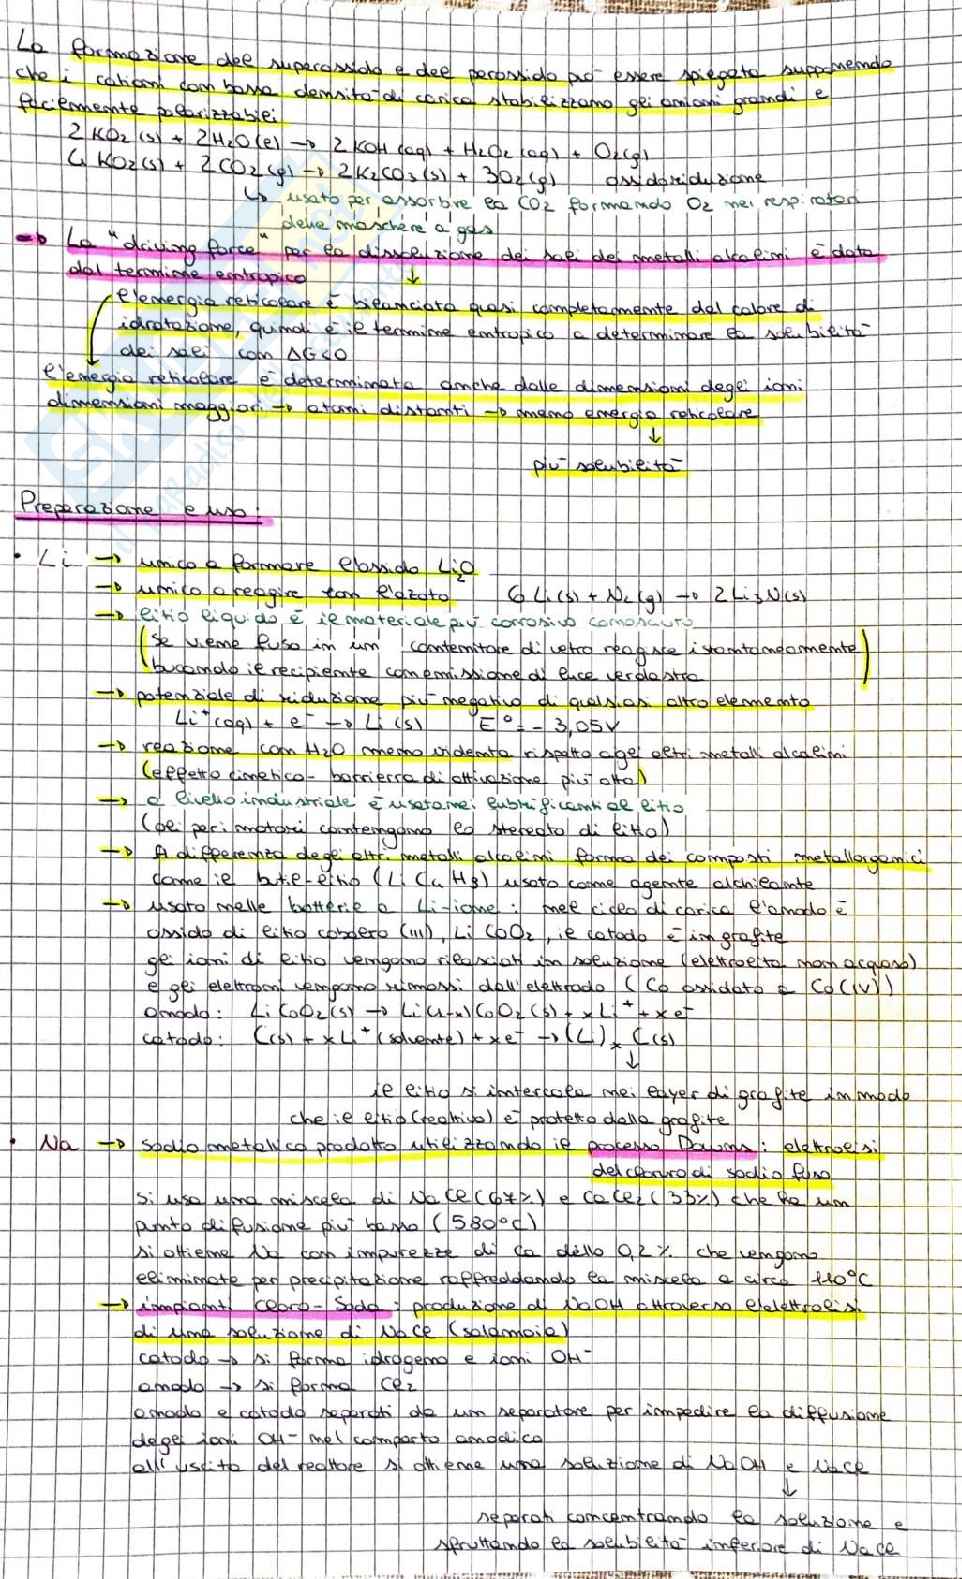 La formazione del superossido e del perossido può essere spiegata supponendo
che i cationi con bassa densità di carica stabilizzano gli anioni grandi e
facilmente polarizzabili
2 KO2 (s) + 2H2O (l) → 2 KOH (aq) + H2O2 (aq) + O2(g)
4 KO2(s) + 2 CO2 (g) → 2K2CO3 (s) + 3O2(g) ossidoriduzione
↳ usato per assorbire la CO2 formando O2 nei respiratori
delle maschere a gas
→ La "driving force" per la dissoluzione dei sali dei metalli alcalini è data
dal termine entropico ↓
l'energia reticolare è bilanciata quasi completamente dal calore di
idratazione, quindi è il termine entropico a determinare la solubilità
dei sali con ΔG<0
l'energia reticolare è determinata anche dalle dimensioni degli ioni
dimensioni maggiori → atomi distanti → meno energia reticolare
↓
più solubilità
Preparazione e uso:
• Li → unico a formare l'ossido Li2O
→ unico a reagire con l'azoto 6 Li(s) + N2(g) → 2 Li3N(s)
→ litio liquido è il materiale più corrosivo conosciuto
(se viene fuso in un contenitore di vetro reagisce istantaneamente
bucando il recipiente con emissione di luce verdastra)
→ potenziale di riduzione più negativo di qualsiasi altro elemento
Li+(aq) + e- → Li (s) E° = - 3,05V
→ reazione con H2O meno violenta rispetto agli altri metalli alcalini
(effetto cinetico - barriera di attivazione più alta)
→ a livello industriale è usato nei lubrificanti al litio
(oli per i motori contengono lo stearato di litio)
→ A differenza degli altri metalli alcalini forma dei composti metallorganici
come il butil-litio (LiC4H9) usato come agente alchilante
→ usato nelle batterie a Li-ione: nel ciclo di carica l'anodo è
ossido di litio cobalto (III), LiCoO2, il catodo è in grafite
gli ioni di litio vengono rilasciati in soluzione (elettrolita non acquoso)
e gli elettroni vengono rimossi dall'elettrodo (Co ossidato a Co(IV))
anodo: LiCoO2(s) → Li(1-x)CoO2(s) + xLi+ + xe-
catodo: C(s) + xLi+ (solvente) + xe- → (Li)x C(s)
↓
il litio si intercala nei layer di grafite in modo
che il litio (reattivo) è protetto dalla grafite
• Na → sodio metallico prodotto utilizzando il processo Downs: elettrolisi
del cloruro di sodio fuso
si usa una miscela di NaCl (67%) e CaCl2 (33%) che ha un
punto di fusione più basso (580°C)
si ottiene Na con impurezze di Ca dello 0,2% che vengono
eliminate per precipitazione raffreddando la miscela a circa 110°C
→ impianti Cloro-Soda: produzione di NaOH attraverso l'elettrolisi
di una soluzione di NaCl (salamoia)
catodo → si forma idrogeno e ioni OH-
anodo → si forma Cl2
anodo e catodo separati da un separatore per impedire la diffusione
degli ioni OH- nel comparto anodico
all'uscita del reattore si ottiene una soluzione di NaOH e NaCl
↓
separati concentrando la soluzione e
sfruttando la solubilità inferiore di NaCl